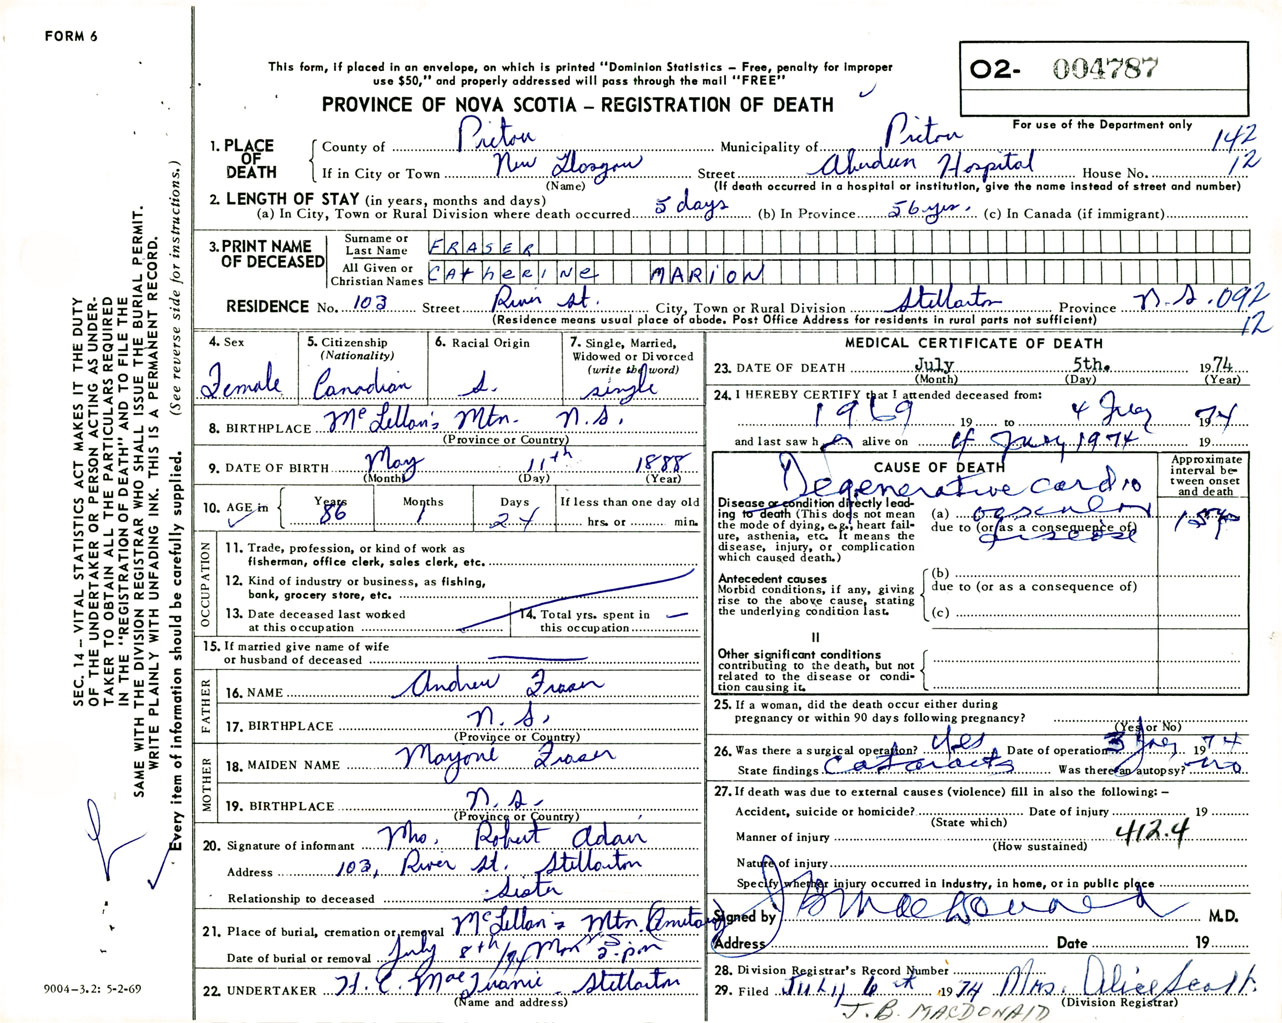 FORM 6
This form, if placed in an envelope, on which is printed "Dominion Statistics – Free, penalty for improper
use $50," and properly addressed will pass through the mail "FREE"
O2- 004787
PROVINCE OF NOVA SCOTIA – REGISTRATION OF DEATH
For use of the Department only
1. PLACE OF DEATH
County of Pictou Municipality of Pictou 142
If in City or Town New Glasgow Street Aberdeen Hospital House No. 12
(Name) (If death occurred in a hospital or institution, give the name instead of street and number)
2. LENGTH OF STAY (in years, months and days)
(a) In City, Town or Rural Division where death occurred 5 days (b) In Province 56 yrs. (c) In Canada (if immigrant)
3. PRINT NAME OF DECEASED
Surname or Last Name FRASER
All Given or Christian Names CATHERINE MARION
RESIDENCE No. 103 Street River St. City, Town or Rural Division Stellarton Province N.S. 092
(Residence means usual place of abode. Post Office Address for residents in rural parts not sufficient) 12
4. Sex Female
5. Citizenship (Nationality) Canadian
6. Racial Origin S.
7. Single, Married, Widowed or Divorced (write the word) single
8. BIRTHPLACE McLellan's Mtn. N.S.
(Province or Country)
9. DATE OF BIRTH May 11th 1888
(Month) (Day) (Year)
10. AGE in Years 86 Months 1 Days 24 If less than one day old hrs. or min.
OCCUPATION
11. Trade, profession, or kind of work as
fisherman, office clerk, sales clerk, etc.
12. Kind of industry or business, as fishing,
bank, grocery store, etc.
13. Date deceased last worked
at this occupation
14. Total yrs. spent in
this occupation
15. If married give name of wife
or husband of deceased
FATHER
16. NAME Andrew Fraser
17. BIRTHPLACE N.S.
(Province or Country)
MOTHER
18. MAIDEN NAME Fraser
19. BIRTHPLACE N.S.
(Province or Country)
20. Signature of informant Mrs. Robert Adair
Address 103, River St. Stellarton
Relationship to deceased Sister
21. Place of burial, cremation or removal McLellan's Mtn.
Date of burial or removal July 8th/74 Mon 2 pm
22. UNDERTAKER H. C. Stellarton
(Name and address)
MEDICAL CERTIFICATE OF DEATH
23. DATE OF DEATH July 5th. 1974
(Month) (Day) (Year)
24. I HEREBY CERTIFY that I attended deceased from:
1969 19 to 4 July 1974
and last saw her alive on 4 July 1974 19
CAUSE OF DEATH
Approximate interval between onset and death
Degenerative cardio
Disease or condition directly lead-
ing to death (This does not mean
the mode of dying, e.g., heart fail-
ure, asthenia, etc. It means the
disease, injury, or complication
which caused death.)
(a) vascular
due to (or as a consequence of)
disease
Antecedent causes
Morbid conditions, if any, giving
rise to the above cause, stating
the underlying condition last.
(b)
due to (or as a consequence of)
(c)
II
Other significant conditions
contributing to the death, but not
related to the disease or condi-
tion causing it.
25. If a woman, did the death occur either during
pregnancy or within 90 days following pregnancy?
(Yes or No)
26. Was there a surgical operation? Yes Date of operation 3 July 1974
State findings Cataracts Was there an autopsy? no
27. If death was due to external causes (violence) fill in also the following: –
Accident, suicide or homicide? Date of injury 19
(State which)
Manner of injury 412.4
(How sustained)
Nature of injury
Specify whether injury occurred in industry, in home, or in public place
Signed by J B MacDonald M.D.
Address Date 19
28. Division Registrar's Record Number
29. Filed July 6th 1974 Mrs. Alice Scott
(Division Registrar)
J. B. MACDONALD
SEC. 14 – VITAL STATISTICS ACT MAKES IT THE DUTY
OF THE UNDERTAKER OR PERSON ACTING AS UNDER-
TAKER TO OBTAIN ALL THE PARTICULARS REQUIRED
IN THE "REGISTRATION OF DEATH" AND TO FILE THE
SAME WITH THE DIVISION REGISTRAR WHO SHALL ISSUE THE BURIAL PERMIT.
WRITE PLAINLY WITH UNFADING INK. THIS IS A PERMANENT RECORD.
Every item of information should be carefully supplied. (See reverse side for instructions.)
9004-3.2: 5-2-69